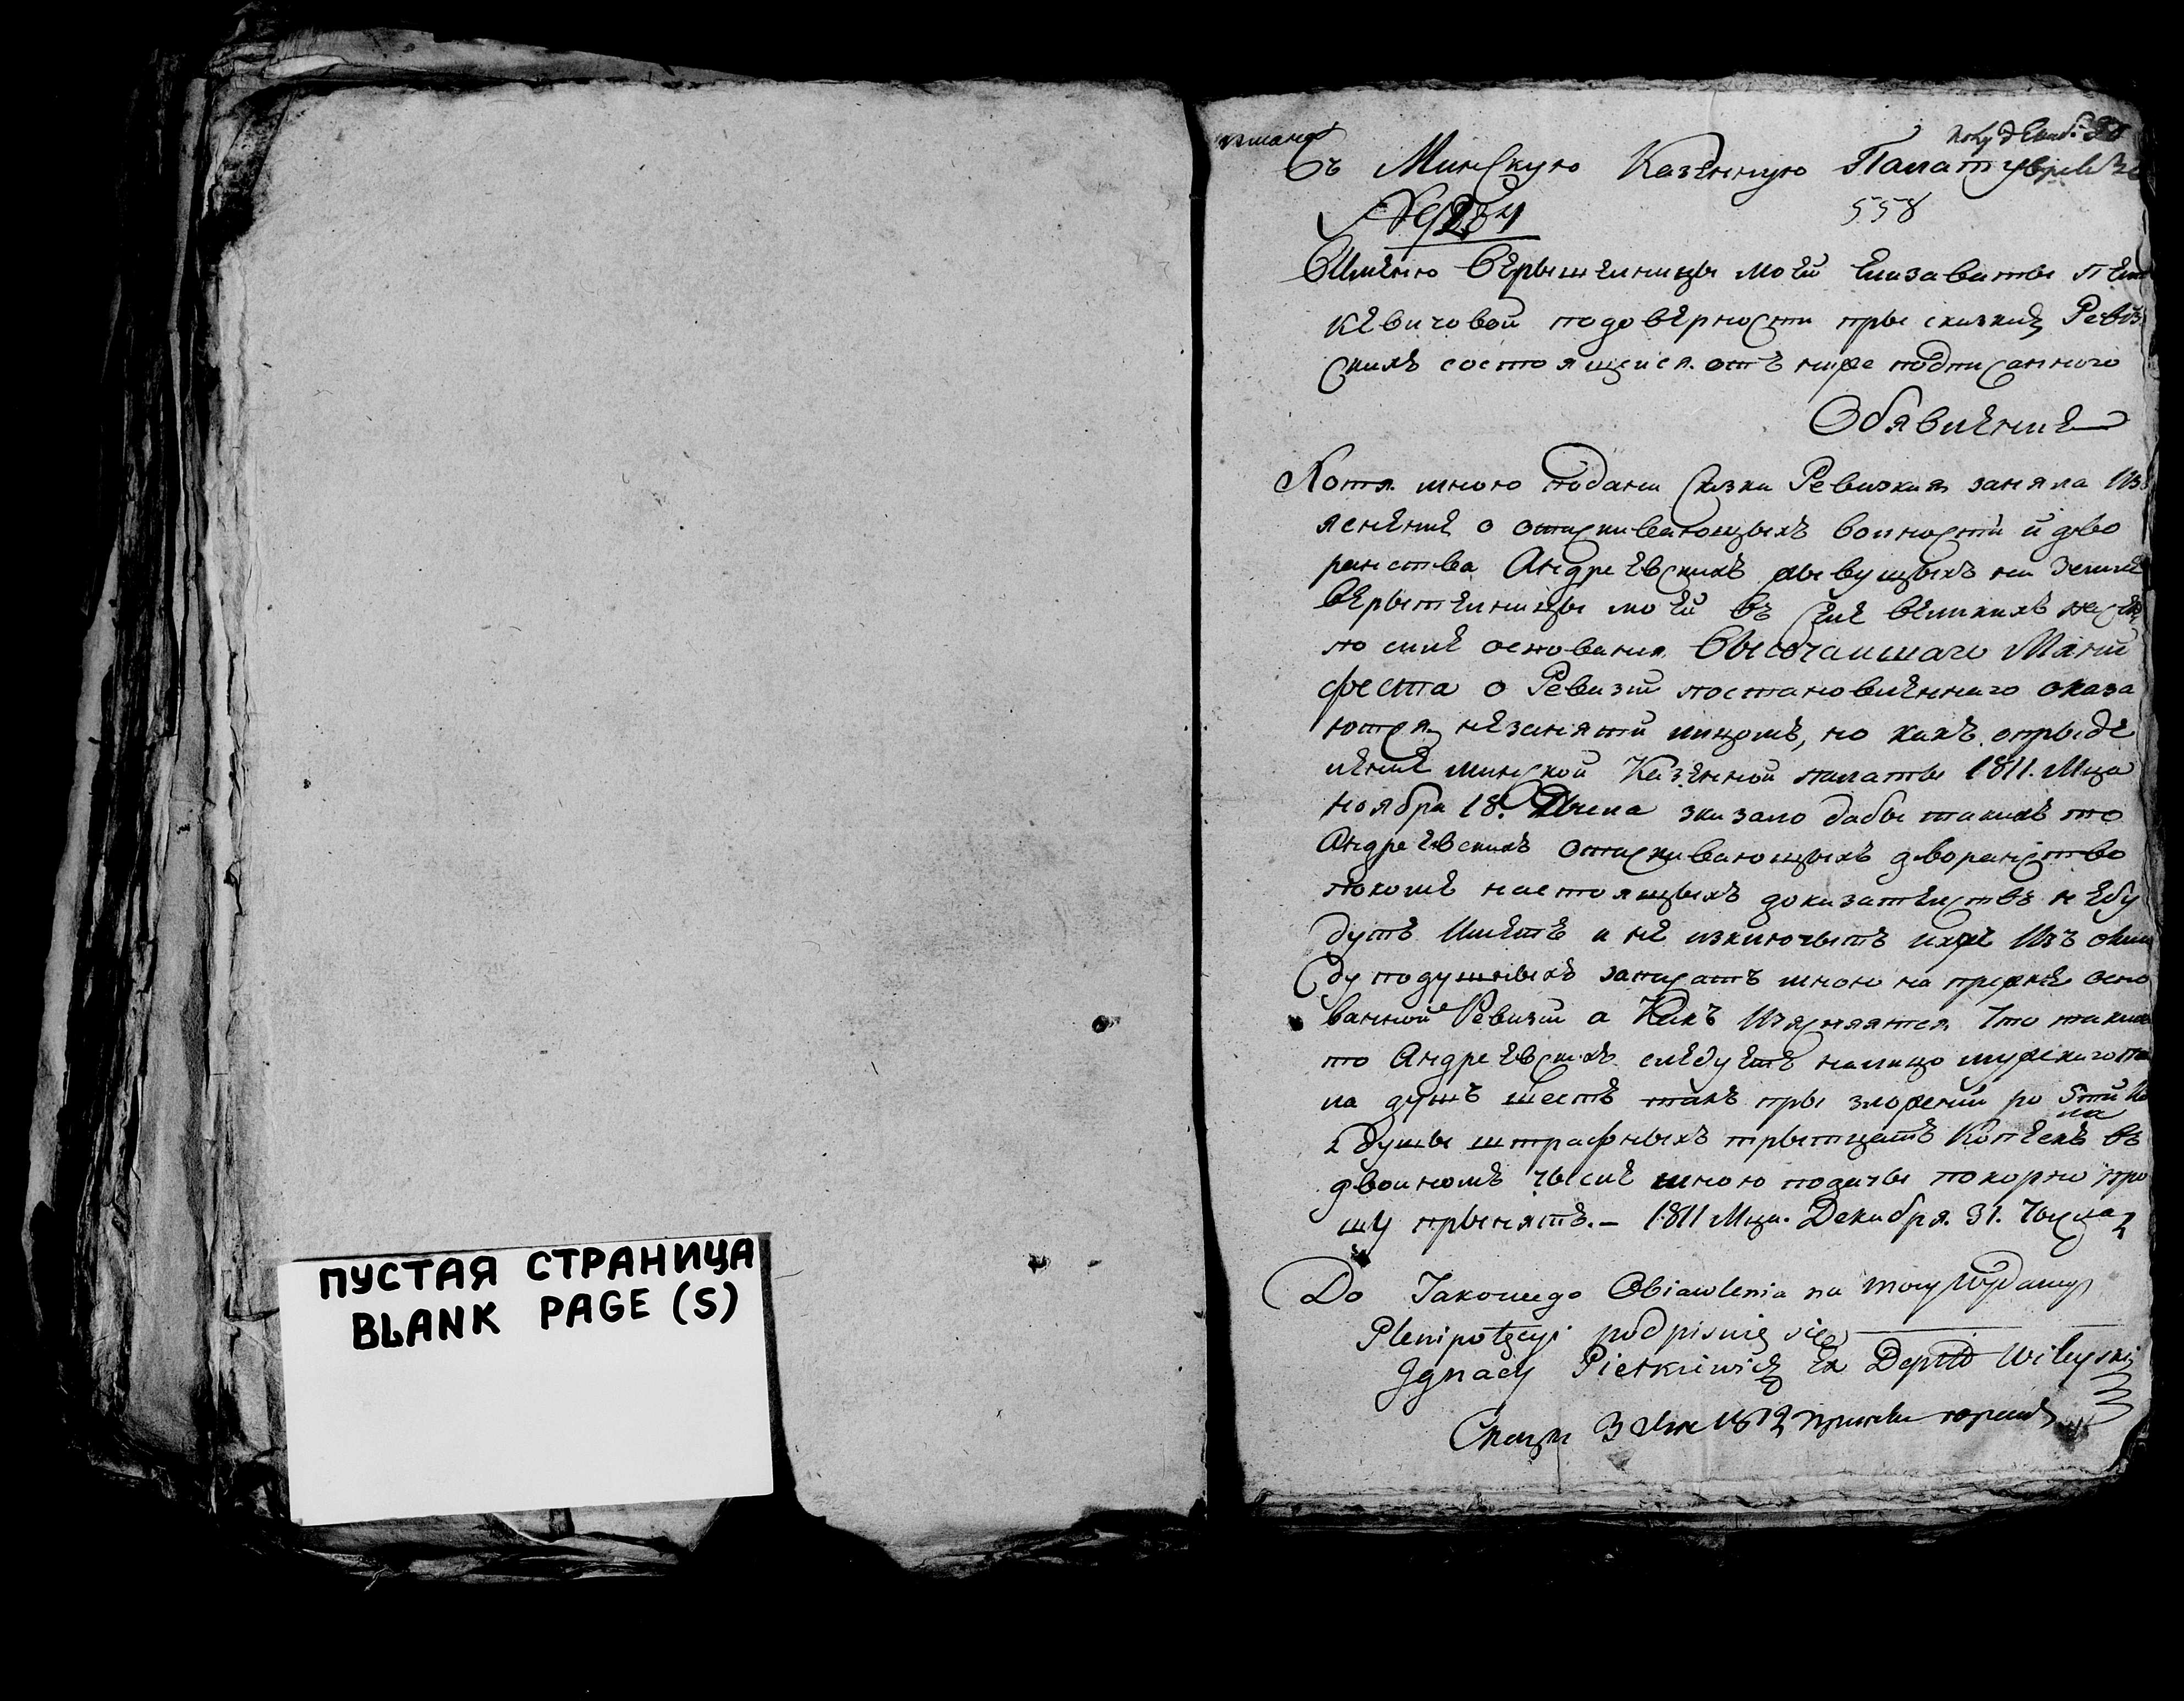 ПУСТАЯ СТРАНИЦА
BLANK PAGE (S)
Въ Минскую Казенную Палату
558
Имѣнию Верытелницы моей Елизаветы Пет
кевичовой по доверности пры сказкиѣ Ревиз
скихъ состоящейся отъ ниже подписанного
Обявление
Хотя мною подани скизки Ревизкия заняла Из
яснение о отискивающыхъ волности и дво
ранства Андреевскихъ жывущыхъ на земле
верытелницы моей въ селе великихъ
по силе основания Высочаишаго Мани
феста о Ревизии постановленнаго оказа
ются незаняти лицомъ, но какъ опрыде
ление минской Казенной палаты 1811. Мца
ноября 18. Числа зказало дабы такихъ то
Андреевскихъ отискивающыхъ дворанство
покои настоящыхъ доказателствъ небу
дутъ имеетъ и не изключытъ ихже изъ окла
ду подушныхъ записатъ мною на прежне осно
ванной Ревизии а Какъ Изясняятся Что такихъ
то Андреевскихъ следуетъ налицо мужскаго по
ла душъ шестъ такъ пры зложении по
душы штрафныхъ трытцатъ Копеекъ въ
двоиномъ чысле мною подачы покорно про
шу прынятъ. – 1811 Мца. Декабря. 31. Чысла
Do Jakowego Obiawlenia na mocy Wydaney
Plenipotęcyi podpisuię się
Jgnacy Pietkiewicz Ex Deptt Wileyski